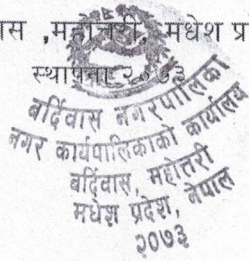 ास ,महोत्तरी, मधेश प्र
स्थापना २०७३
बर्दिवास नगरपालिका
नगर कार्यपालिकाको कार्यालय
बर्दिवास, महोत्तरी
मधेश प्रदेश, नेपाल
२०७३